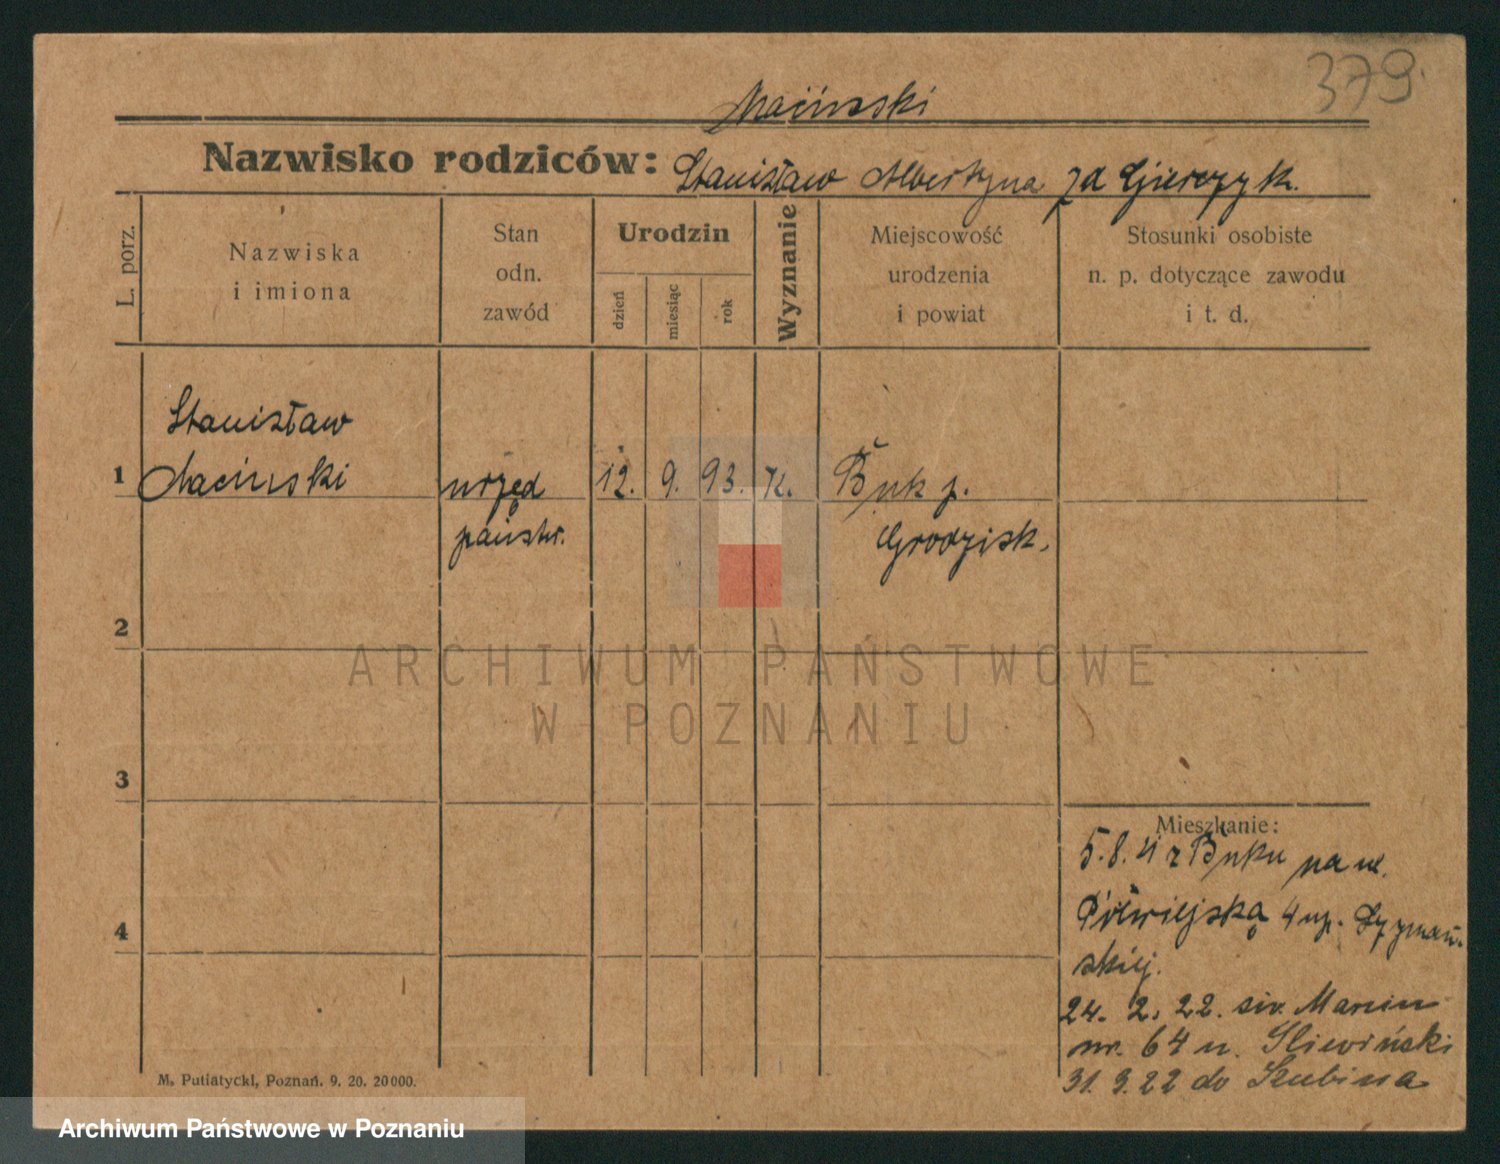 379.
Maciński
Nazwisko rodziców: Stanisław Albertyna zd Gierczyk.
L. porz.
Nazwiska
i imiona
Stan
odn.
zawód
Urodzin
dzień
miesiąc
rok
Wyznanie
Miejscowość
urodzenia
i powiat
Stosunki osobiste
n. p. dotyczące zawodu
i t. d.
Stanisław
1 Maciński urzęd 12. 9. 93. K. Buk p.
państw. Grodzisk.
2
ARCHIWUM PAŃSTWOWE
W POZNANIU
3
4
Mieszkanie:
5.8. z Buku na ul.
Półwiejską 4 up. Szymań-
skiej.
24. 2. 22. św. Marcin
nr. 64 u. Śliwiński
31. 3. 22 do Szubina
M. Putiatycki, Poznań. 9. 20. 20000.
Archiwum Państwowe w Poznaniu